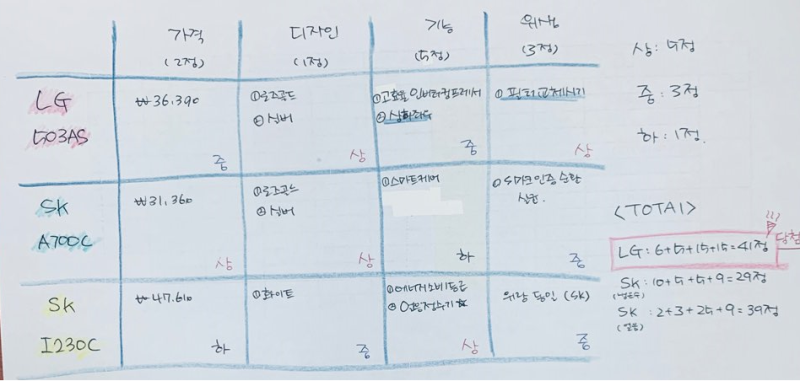 가격 디자인 기능 위생
(2점) (1점) (5점) (3점)
LG 503AS
₩36,390
중
①로즈골드
②실버
상
①고효율 인버터컴프레서
②상하좌우
중
① 필터교체시기
상
SK A700C
₩31,360
상
①로즈골드
②실버
상
①스마트케어
하
①S마크인증 순환
살균.
중
SK I230C
₩47,610
하
①화이트
중
①에너지소비등급
상
위랑 동일 (SK)
중
상: 5점
중: 3점
하: 1점.
<TOTAl>
LG: 6+5+15+15=41점
당첨
SK: 10+5+5+9=29점
SK: 2+3+25+9=39점